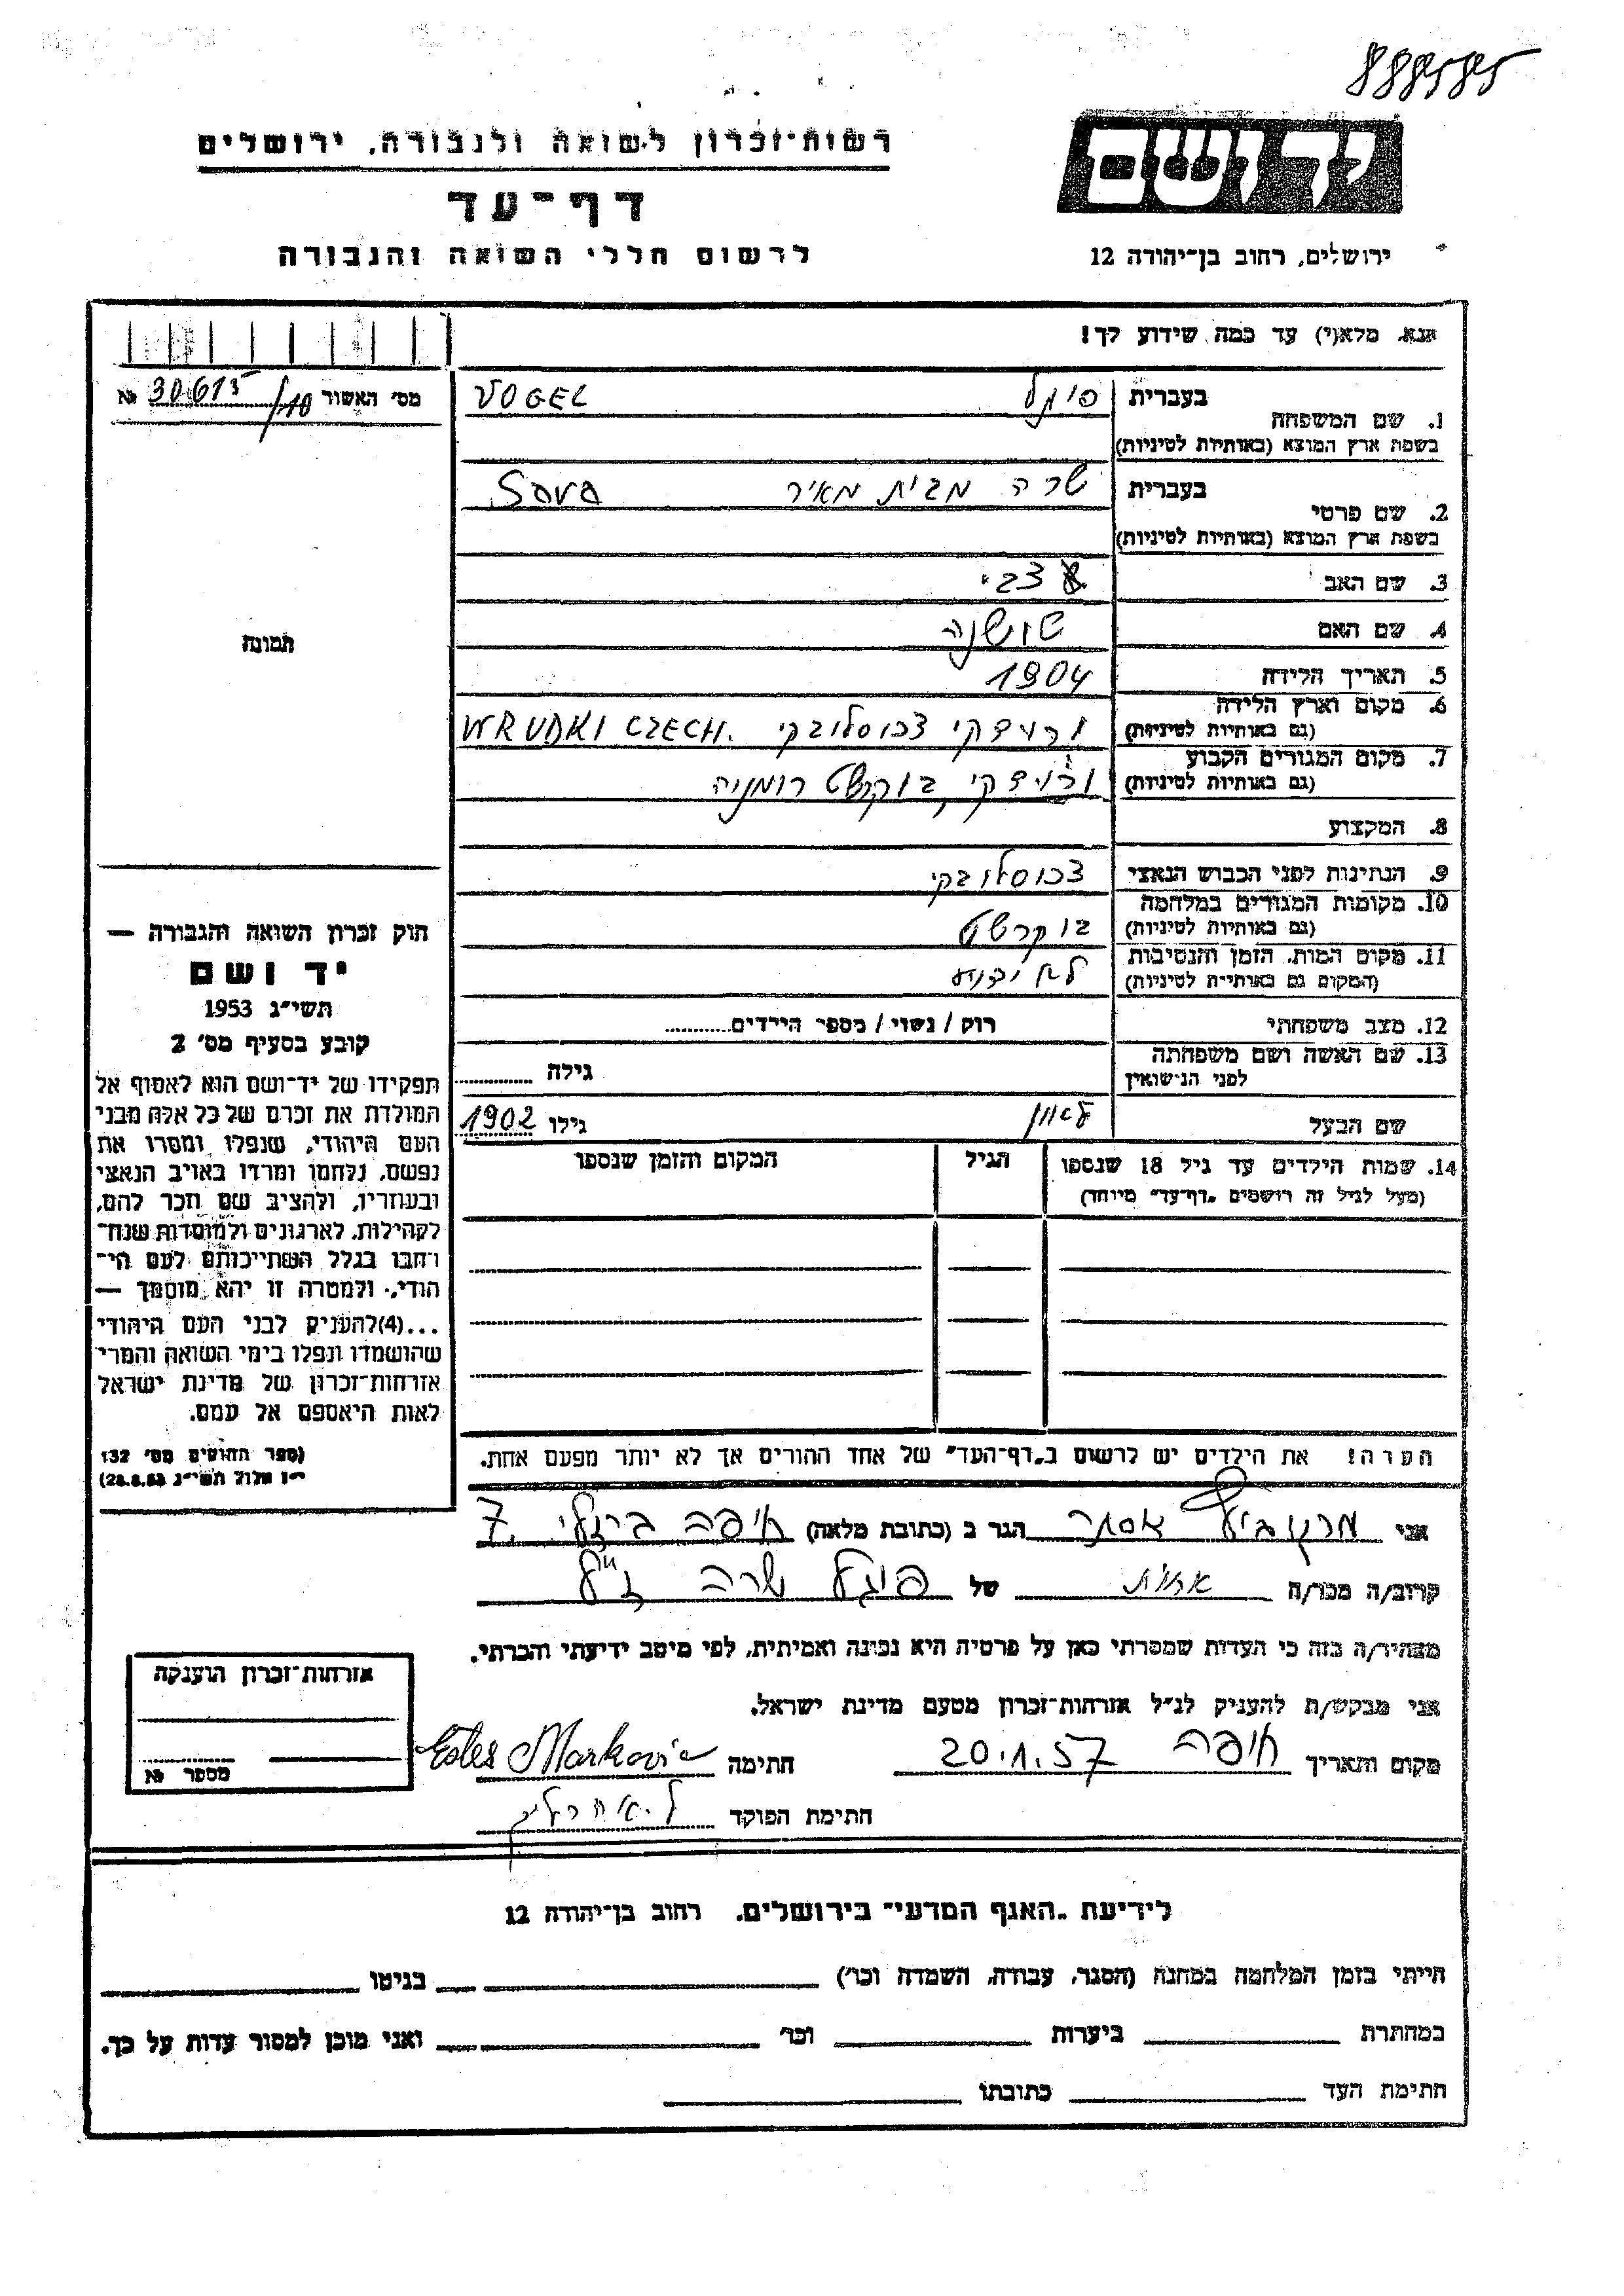 888585
רשות־זכרון לשואה ולגבורה, ירושלים
יד ושם
דף־עד
לרשום חללי השואה והגבורה
ירושלים, רחוב בן־יהודה 12
אנא, מלא(י) עד כמה שידוע לך!
מס׳ האשור 30615/110 №
1. שם המשפחה בעברית פוגל VOGEL
בשפת ארץ המוצא (באותיות לטיניות)
2. שם פרטי בעברית שרה מבית מאיר Sara
בשפת ארץ המוצא (באותיות לטיניות)
3. שם האב צבי
4. שם האם שושנה
5. תאריך הלידה 1904
6. מקום וארץ הלידה ורוידקי צכוסלובקי WRUDKI CZECH.
(גם באותיות לטיניות)
7. מקום המגורים הקבוע ורוידקי, בוקרשט רומניה
(גם באותיות לטיניות)
8. המקצוע
9. הנתינות לפני הכבוש הנאצי צכוסלובקי
10. מקומות המגורים במלחמה בוקרשט
(גם באותיות לטיניות)
11. מקום המות, הזמן והנסיבות לא ידוע
(המקום גם באותיות לטיניות)
12. מצב משפחתי רוק / נשוי / מספר הילדים
13. שם האשה ושם משפחתה גילה
לפני הנישואין
שם הבעל לאון גילו 1902
14. שמות הילדים עד גיל 18 שנספו הגיל המקום והזמן שנספו
(מעל לגיל זה רושמים „דף־עד״ מיוחד)
הערה: את הילדים יש לרשום ב„דף־העד״ של אחד ההורים אך לא יותר מפעם אחת.
תמונה
חוק זכרון השואה והגבורה —
יד ושם
תשי״ג 1953
קובע בסעיף מס׳ 2
תפקידו של יד־ושם הוא לאסוף אל
המולדת את זכרם של כל אלה מבני
העם היהודי, שנפלו ומסרו את
נפשם, נלחמו ומרדו באויב הנאצי
ובעוזריו, ולהציב שם וזכר להם,
לקהילות, לארגונים ולמוסדות שנח־
רבו בגלל השתייכותם לעם הי־
הודי, ולמטרה זו יהא מוסמך —
...(4)להעניק לבני העם היהודי
שהושמדו ונפלו בימי השואה והמרי
אזרחות־זכרון של מדינת ישראל
לאות היאספם אל עמם.
(ספר החוקים מס׳ 132
י״ז אלול תשי״ג 28.8.53)
אני מרקוביץ אסתר הגר ב (כתובת מלאה) חיפה ברזילי 7
קרוב/ה מכר/ה אחות של פוגל שרה ז״ל
מצהיר/ה בזה כי העדות שמסרתי כאן על פרטיה היא נכונה ואמיתית, לפי מיטב ידיעתי והכרתי.
אני מבקש/ת להעניק לנ״ל אזרחות־זכרון מטעם מדינת ישראל.
מקום ותאריך חיפה 20.1.57 חתימה Markovic
חתימת הפוקד
אזרחות־זכרון הוענקה
מספר №
לידיעת „האגף המדעי״ בירושלים, רחוב בן־יהודה 12
הייתי בזמן המלחמה במחנה (הסגר, עבודה, השמדה וכו׳) בגיטו
במחתרת ביערות וכו׳ ואני מוכן למסור עדות על כך.
חתימת העד כתובתו